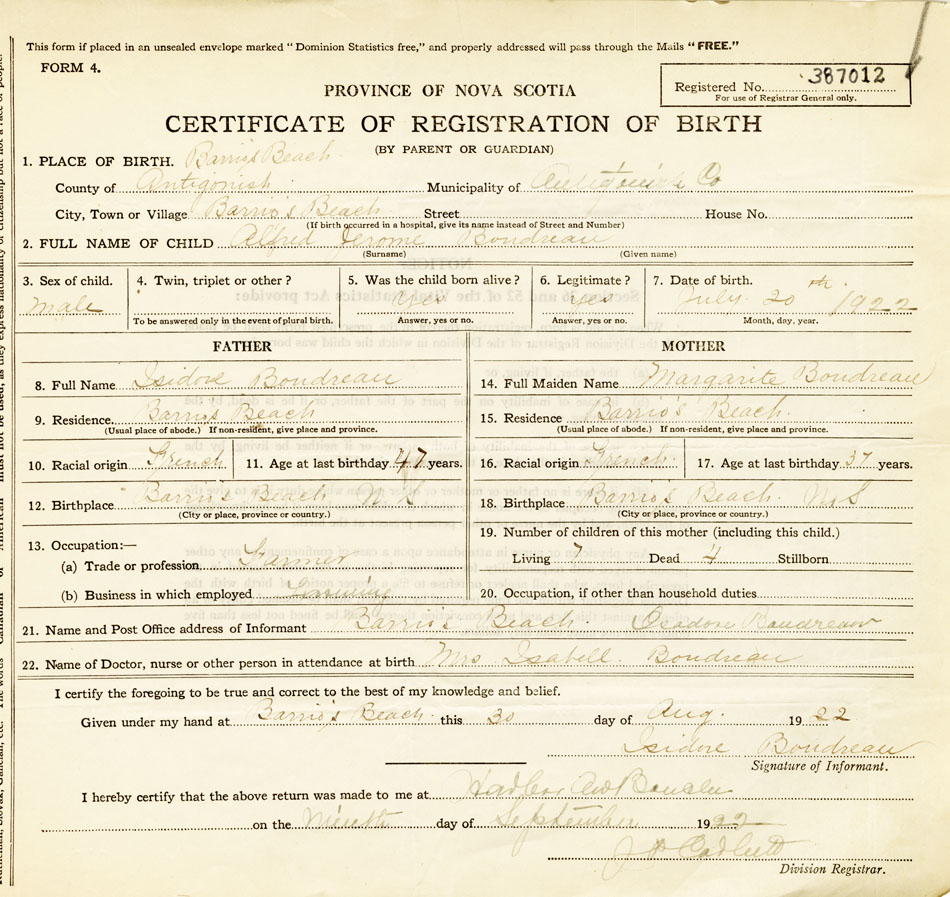 This form if placed in an unsealed envelope marked "Dominion Statistics free," and properly addressed will pass through the Mails "FREE."
FORM 4.
Registered No. 387012
For use of Registrar General only.
PROVINCE OF NOVA SCOTIA
CERTIFICATE OF REGISTRATION OF BIRTH
(BY PARENT OR GUARDIAN)
1. PLACE OF BIRTH. Barrio's Beach
County of Antigonish Municipality of Antigonish Co
City, Town or Village Barrio's Beach Street House No.
(If birth occurred in a hospital, give its name instead of Street and Number)
2. FULL NAME OF CHILD Alfred Jerome Boudreau
(Surname) (Given name)
3. Sex of child. 4. Twin, triplet or other? 5. Was the child born alive? 6. Legitimate? 7. Date of birth.
Male Yes Yes July 20th 1922
To be answered only in the event of plural birth. Answer, yes or no. Answer, yes or no. Month, day, year.
FATHER MOTHER
8. Full Name Isidore Boudreau 14. Full Maiden Name Margarite Boudreau
9. Residence Barrio's Beach 15. Residence Barrio's Beach
(Usual place of abode.) If non-resident, give place and province. (Usual place of abode.) If non-resident, give place and province.
10. Racial origin French 11. Age at last birthday 47 years. 16. Racial origin French 17. Age at last birthday 37 years.
12. Birthplace Barrio's Beach N S 18. Birthplace Barrio's Beach N S
(City or place, province or country.) (City or place, province or country.)
13. Occupation:— 19. Number of children of this mother (including this child.)
(a) Trade or profession Farmer Living 7 Dead 4 Stillborn
(b) Business in which employed Farming 20. Occupation, if other than household duties
21. Name and Post Office address of Informant Barrio's Beach Boudreau
22. Name of Doctor, nurse or other person in attendance at birth Mrs Isabell Boudreau
I certify the foregoing to be true and correct to the best of my knowledge and belief.
Given under my hand at Barrio's Beach this 30 day of Aug. 1922
Isidore Boudreau
Signature of Informant.
I hereby certify that the above return was made to me at
on the Ninth day of September 1922
Division Registrar.